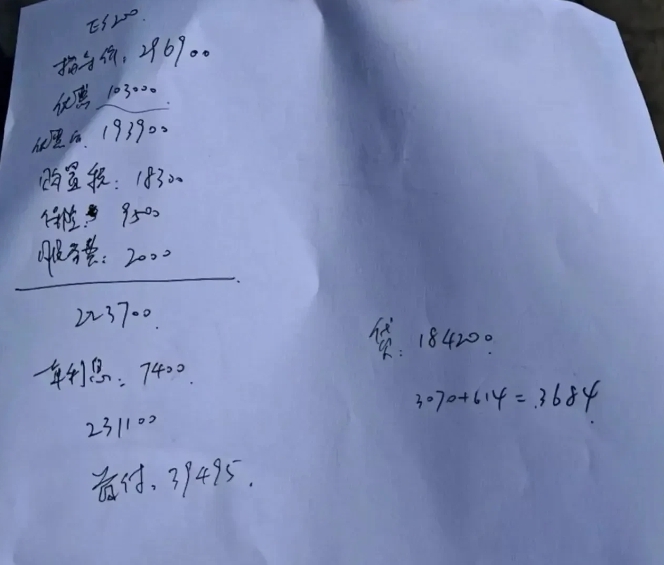 ES200.
指导价: 296900
优惠 103000
优惠后. 193900
购置税: 18300
保险: 9500
服务费: 2000
223700.
一年利息: 7400.
231100
首付: 39495.
贷: 184200.
3070+614=3684.